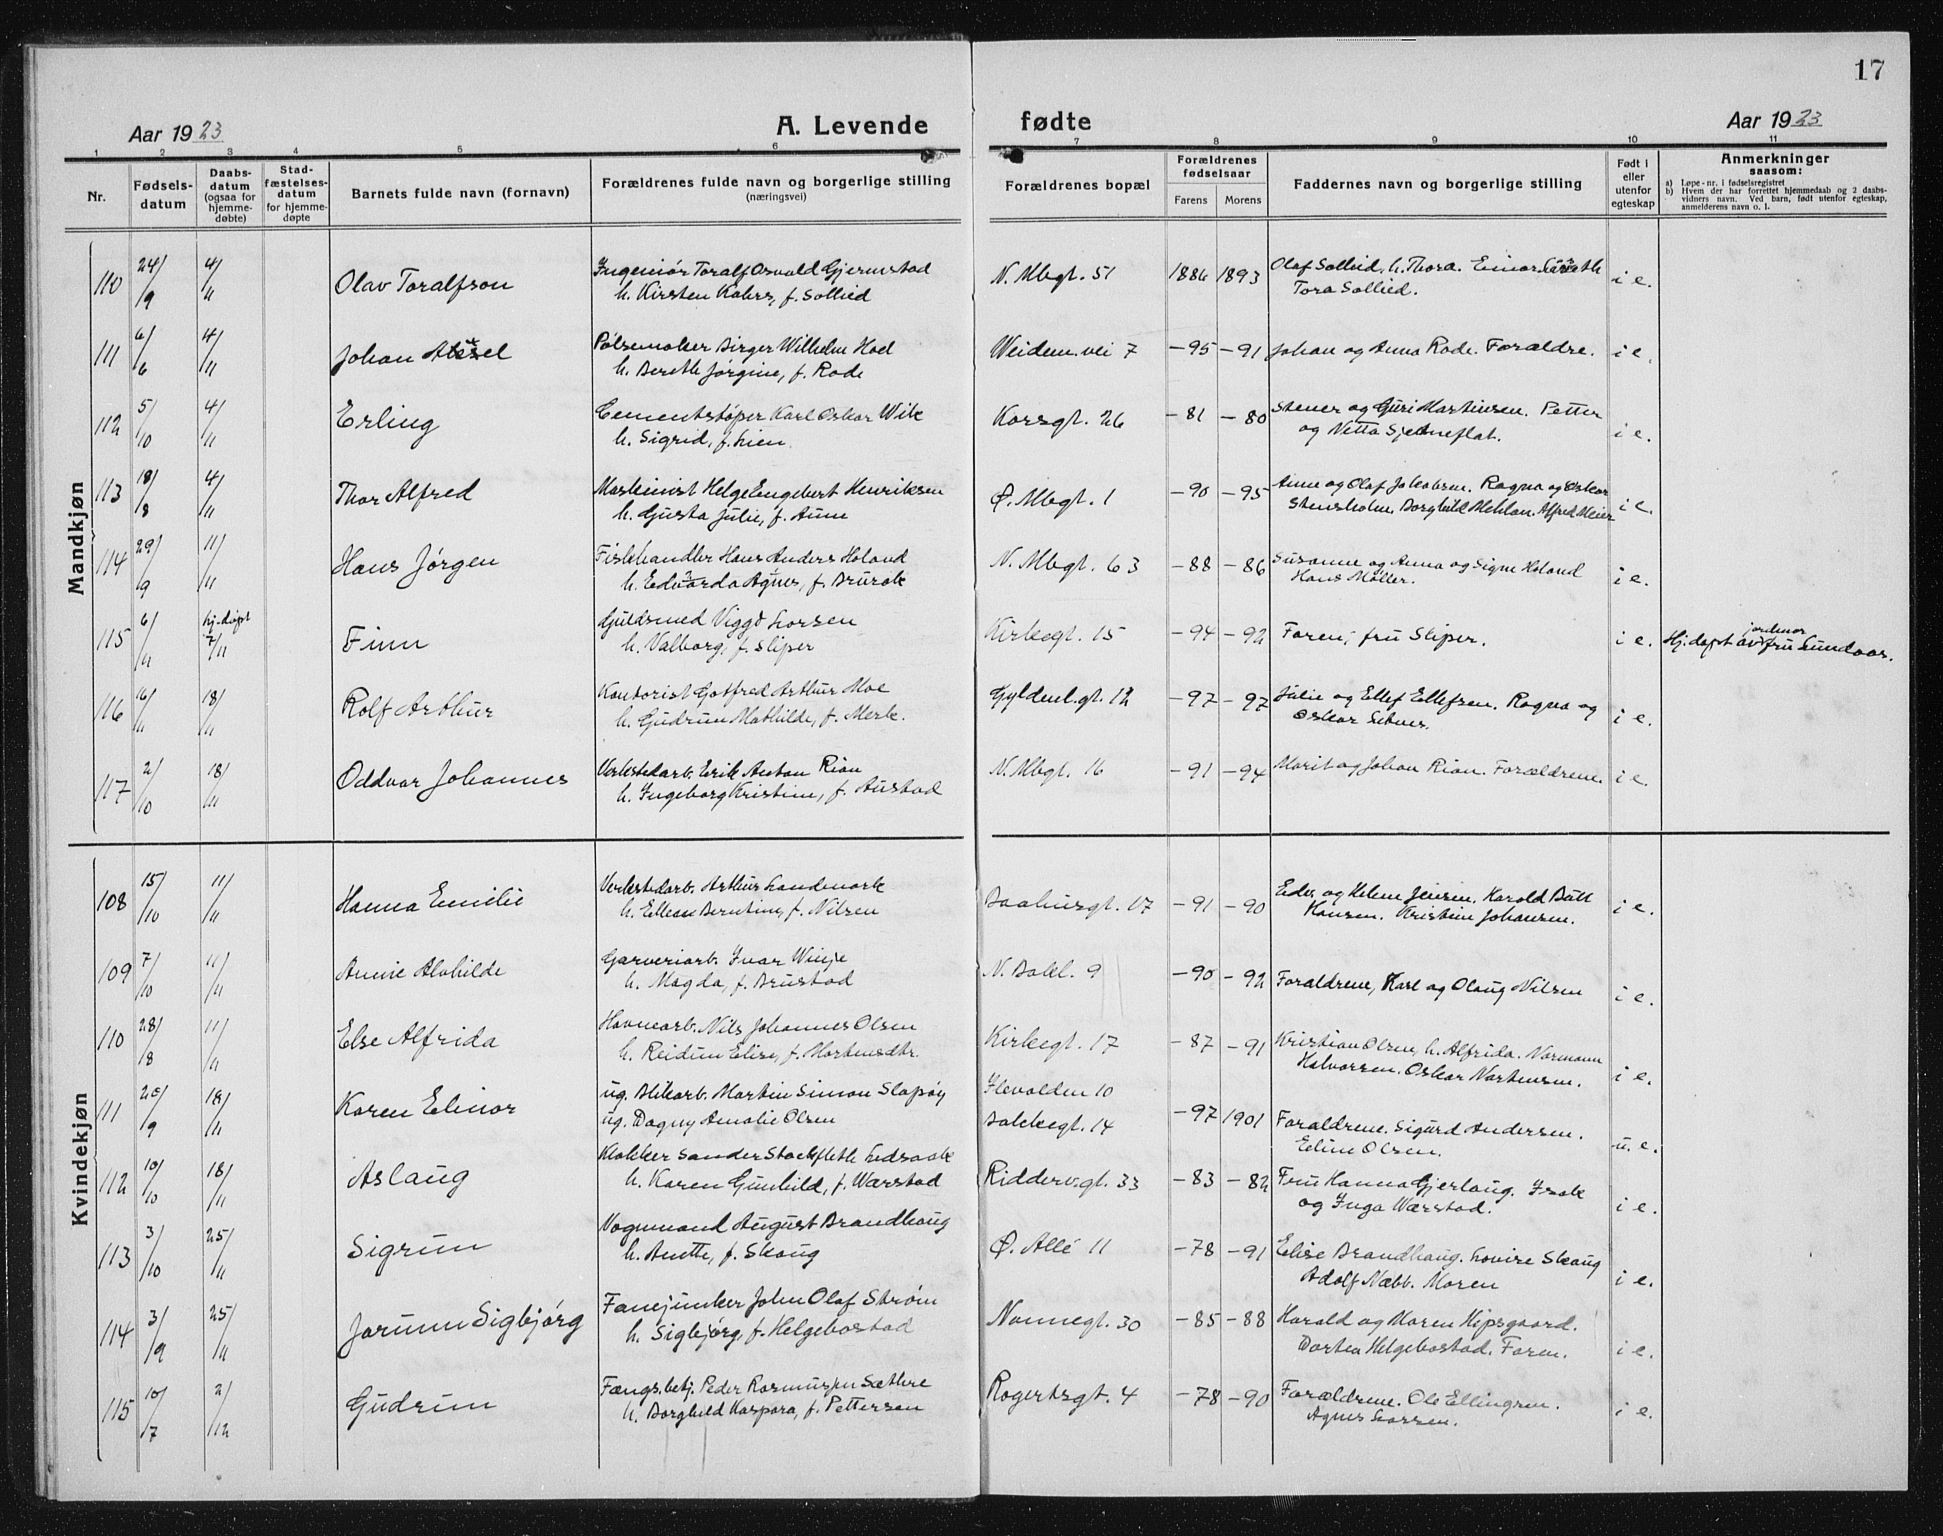 17
Aar 1923 A. Levende fødte Aar 1923
1 2 3 4 5 6 7 8 9 10 11
Nr.
Fødsels-
datum
Daabs-
datum
(ogsaa for
hjemme-
døbte)
Stad-
fæstelses-
datum
for hjemme-
døpte
Barnets fulde navn (fornavn)
Forældrenes fulde navn og borgerlige stilling
(næringsvei)
Forældrenes bopæl
Forældrenes
fødselsaar
Farens Morens
Faddernes navn og borgerlig stilling
Født i
eller
utenfor
egteskap
Anmerkninger
saasom:
a) Løpe-nr. i fødselsregistret
b) Hvem der har forrettet hjemmedaab og 2 daabs-
vidners navn. Ved barn, født utenfor egteskap,
anmelderens navn o. l.
Mandkjøn
110 24/9 4/11 Olav Toralfson Ingeniør Toralf Osvald Gjermstad N. Mbgt. 51 1886 1893 Olaf Sollied, h. Thora. Einar i e.
h. Kirsten Kahrs, f. Sollied Tora Sollied.
111 6/6 4/11 Johan Pølsemaker Birger Wilhelm Hoel Weidem.vei 7 -95 -91 Johan og Anna Rode. Forældre. i e.
h. Bereth Jørgine, f. Rode
112 5/10 4/11 Erling Cementstøper Karl Oskar Wik Korsgt. 26 -81 -80 Stener og Guri Martinsen. Petter i e.
h. Sigrid, f. Lien og Netta Sjetneflat.
113 18/8 4/11 Thor Alfred Maskinist Helge Engebert Henriksen Ø. Mbgt. 1 -90 -95 Anne og Olaf Jakobsen. Ragna og Oskar i e.
h. Gusta Julie, f. Aune Stensholm. Borghild Mehlan. Alfred Meier
114 29/9 11/11 Hans Jørgen Fiskehandler Hans Anders Holand N. Mbgt. 63 -88 -86 Susanne og Anna og Signe Holand i e.
h. Edvarda Agnes, f. Brurok Hans Møller.
115 6/11 hj.døpt 7/11 Finn Guldsmed Viggo Larsen Kirkegt. 15 -94 -92 Faren, fru Sliper. i e. Hj.døpt av jordmor fru Sundaar.
h. Valborg, f. Sliper
116 16/11 18/11 Rolf Arthur Kontorist Gotfred Arthur Moe Gyldenl.gt. 12 -97 -97 Julie og Ellef Ellefsen. Ragna og i e.
h. Gudrun Mathilde, f. Merk. Oskar Setner.
117 2/10 18/11 Oddvar Johannes Verkstedarb. Erik Anton Rian N. Mbgt. 16 -91 -94 Marit og Johan Rian. Forældrene. i e.
h. Ingeborg Kristine, f. Austad
Kvindekjøn
108 15/10 11/11 Hanna Emilie Verkstedarb. Arthur Landmark Baahusgt. 17 -91 -90 og Helene Jensen. Harold Bull i e.
h. Ellen Berntine, f. Nilsen Hansen. Kristine Johansen.
109 7/10 11/11 Annie Alvhilde Garveriarb. Ivar Winje N. Bakl. 9 -90 -92 Forældrene, Karl og Olaug Nilsen i e.
h. Magda, f. Brustad
110 28/8 11/11 Else Alfrida Havnearb. Nils Johannes Olsen Kirkegt. 17 -87 -91 Kristian Olsen, h. Alfrida. Normann i e.
h. Reidun Elise, f. Mortensdtr. Halvorsen. Oskar Mortensen.
111 20/9 18/11 Karen Elinor ug. Blikarb. Martin Simon Slapøy Ilevolden 10 -97 1901 Forældrene. Sigurd Andersen. u. e.
ug. Dagny Amalie Olsen Bakkegt. 14 Eline Olsen.
112 10/10 18/11 Aslaug Klokker Sander Stockfleth Lidsaak Ridderv.gt. 33 -83 -82 Fru Hanna Gjerlaug. Isak i e.
h. Karen Gunhild, f. Wærstad og Inga Wærstad.
113 3/10 25/11 Sigrun Vognmand August Brandhaug Ø. Allé 11 -78 -91 Elise Brandhaug. Lovise Skaug i e.
h. Anette, f. Skaug Adolf Næbb. Moren
114 3/9 25/11 Jorunn Sigbjørg Fanejunker John Olaf Strøm Nonnegt. 30 -85 -88 Harald og Maren Hipsgaard. i e.
h. Sigbjørg, f. Helgebostad Dorthea Helgebostad. Faren.
115 10/7 2/12 Gudrun Fængs.betj. Peder Rasmussen Sæthre Rogertsgt. 4 -78 -90 Forældrene. Ole Ellingsen. i e.
h. Borghild Kaspara, f. Pettersen Agnes Larsen.